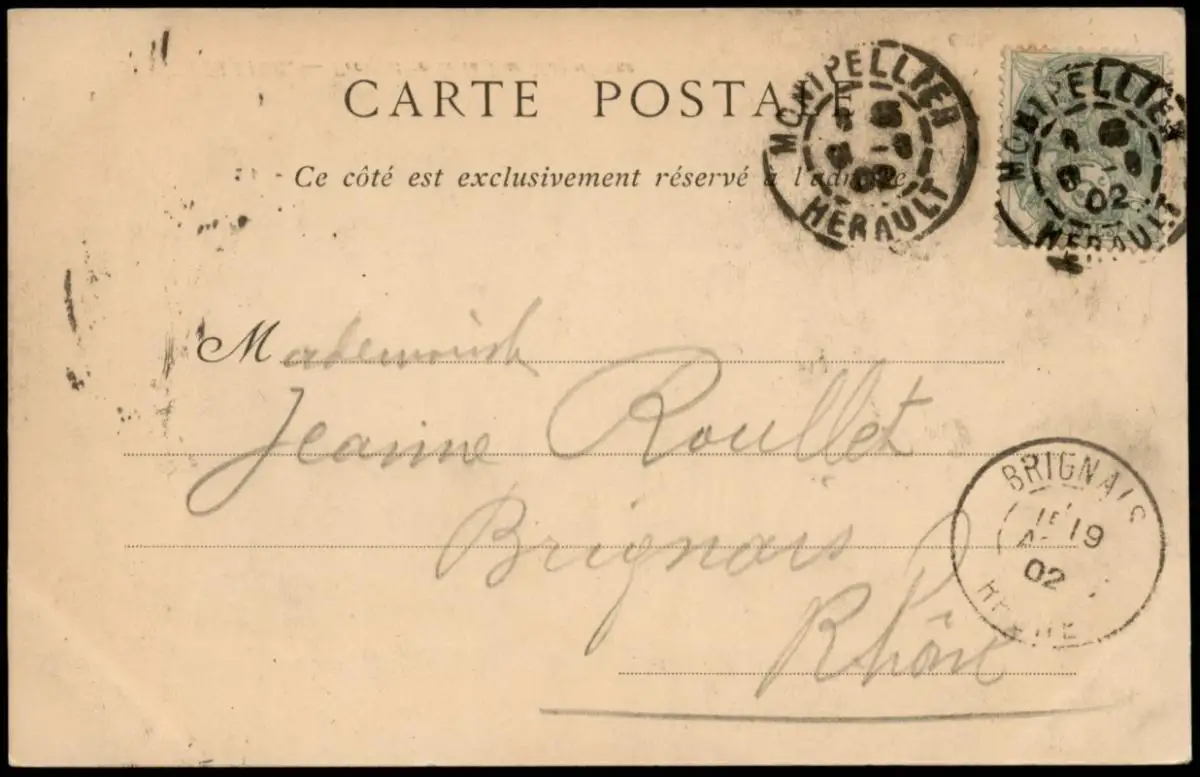 CARTE POSTALE
Ce côté est exclusivement réservé à l'adresse
MONTPELLIER
HÉRAULT
02
MONTPELLIER
HÉRAULT
02
Mademoiselle
Jeanne Roullet
Brignais
Rhône
BRIGNAIS
19
02
RHONE